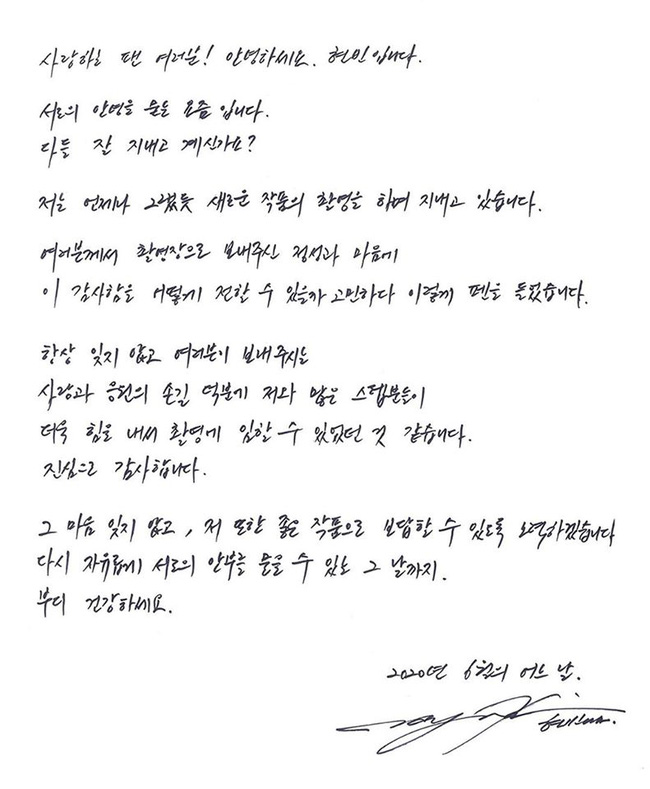 사랑하는 팬 여러분! 안녕하세요. 현빈입니다.
서로의 안녕을 묻는 요즘입니다.
다들 잘 지내고 계신가요?
저는 언제나 그랬듯 새로운 작품의 촬영을 하며 지내고 있습니다.
여러분께서 촬영장으로 보내주신 정성과 마음에
이 감사함을 어떻게 전할 수 있을까 고민하다 이렇게 펜을 들었습니다.
항상 잊지 않고 여러분이 보내주시는
사랑과 응원의 손길 덕분에 저와 많은 스탭분들이
더욱 힘을 내서 촬영에 임할 수 있었던 것 같습니다.
진심으로 감사합니다.
그 마음 잊지 않고, 저 또한 좋은 작품으로 보답할 수 있도록 노력하겠습니다
다시 자유롭게 서로의 안부를 물을 수 있는 그 날까지.
부디 건강하세요.
2020년 6월의 어느 날.